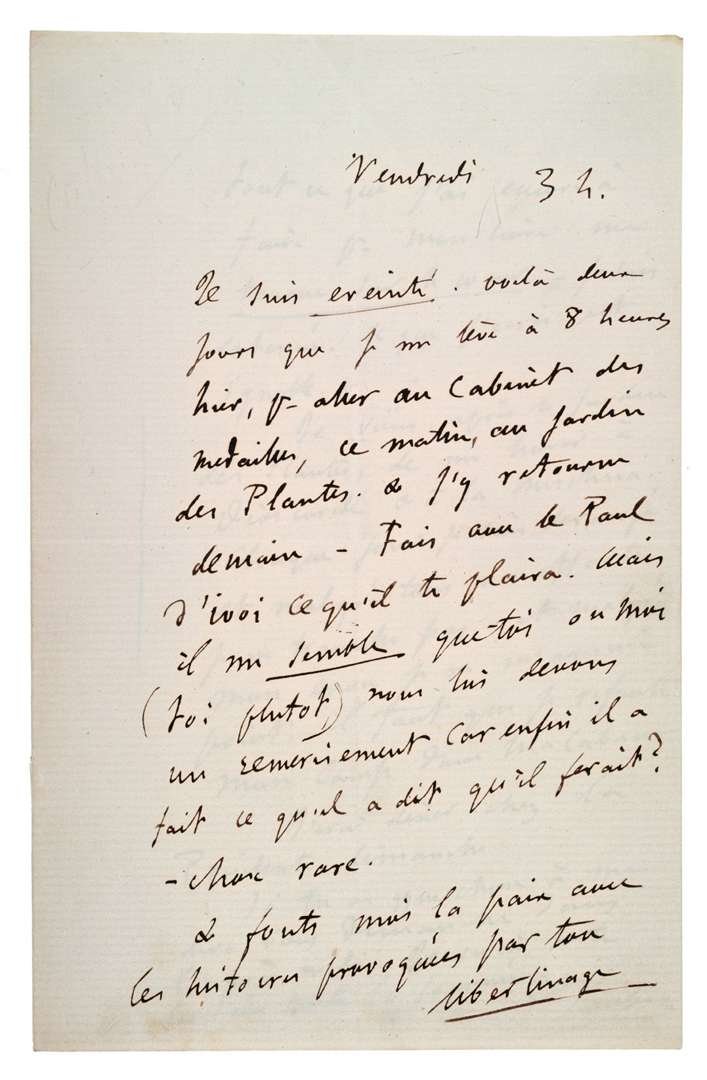 Vendredi 3 h.
Je suis ereinté. voilà deux
jours que je me lève à 8 heures
hier, pr aller au Cabinet des
medailles, ce matin, au jardin
des Plantes. & j'y retourne
demain – Fais avec le Paul
d'ivoi ce qu'il te plaira. Mais
il me semble que toi ou moi
(toi plutot) nous lui devons
un remerciement car enfin il a
fait ce qu'il a dit qu'il ferait?
– chose rare.
& fouts moi la paix avec
les histoires provoquées par ton
libertinage